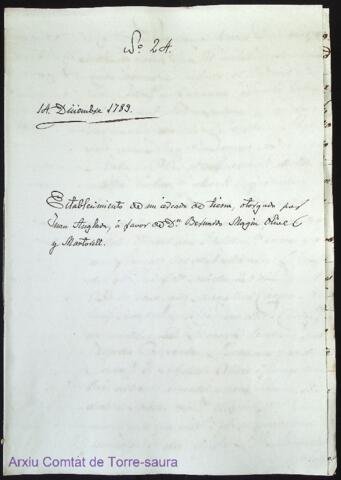 Nº 24.
14. Diciembre 1789.
Establecimiento de un cercado de tierra, otorgado por
Juan Anglada, à favor de Dn. Bernardo Magin Olives
y Martorell.
Arxiu Comtat de Torre-saura